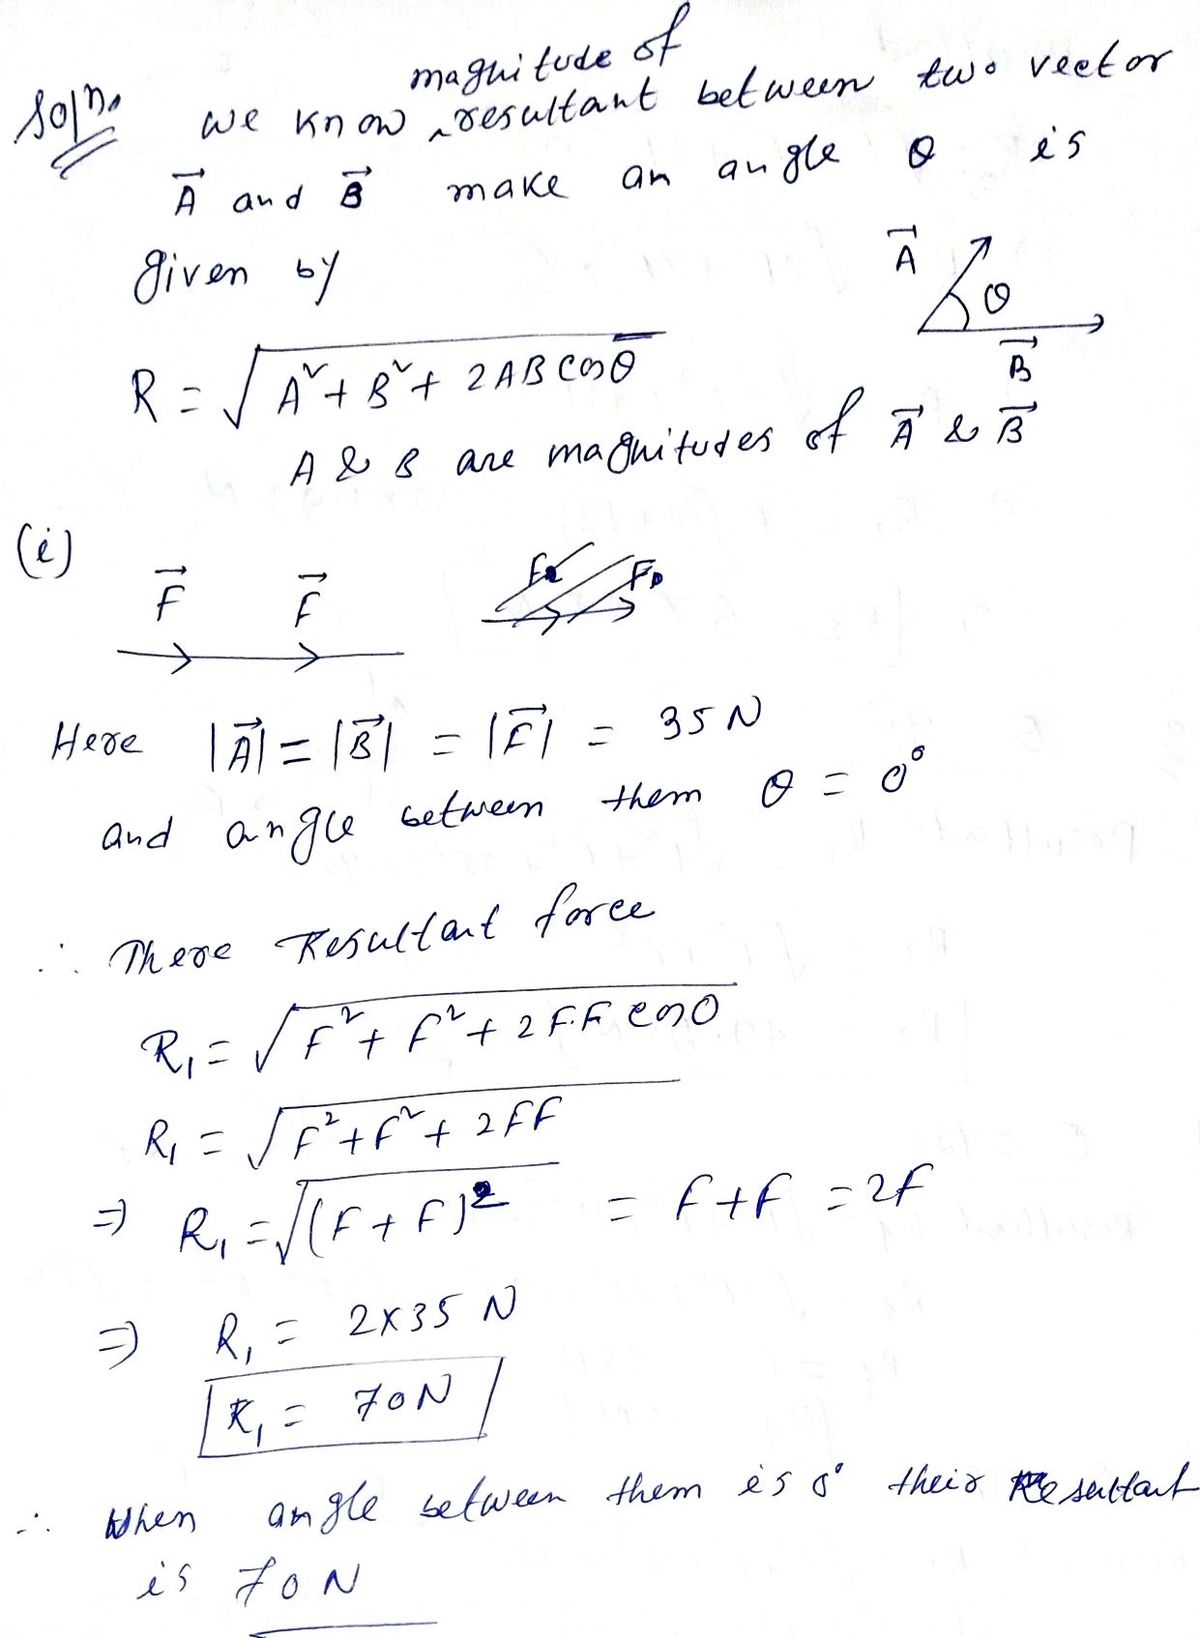 Soln. We know magnitude of resultant between two vector
A⃗ and B⃗ make an angle θ is
given by
A⃗ θ B⃗
R = √(A² + B² + 2AB cosθ)
A & B are magnitudes of A⃗ & B⃗
(i)
F⃗ F⃗
Here |A⃗| = |B⃗| = |F⃗| = 35 N
and angle between them θ = 0°
∴ There Resultant force
R₁ = √(F² + F² + 2F.F cos0)
R₁ = √(F² + F² + 2FF)
⇒ R₁ = √(F + F)² = F + F = 2F
⇒ R₁ = 2×35 N
R₁ = 70N
∴ When angle between them is 0° their Resultant
is 70N